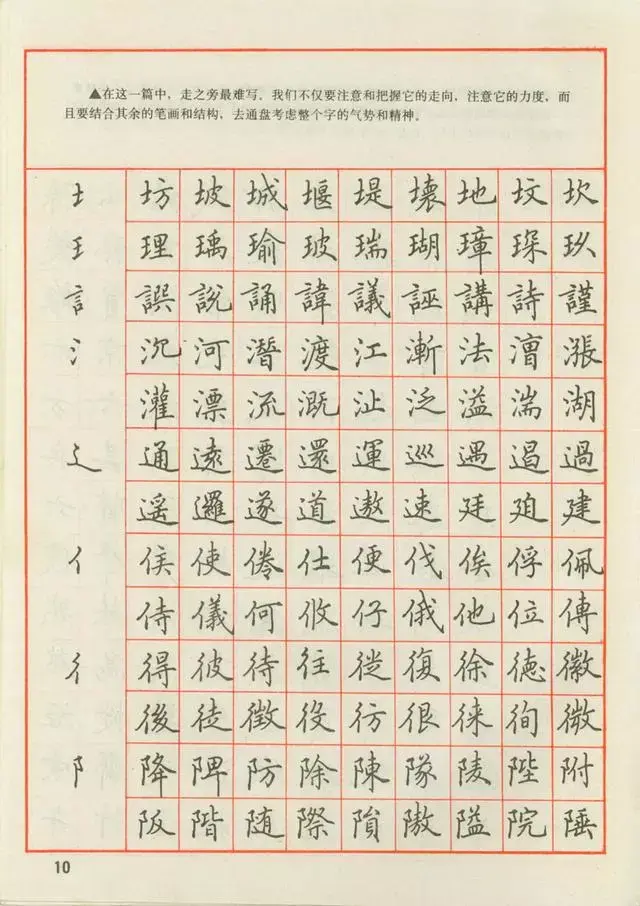 ▲在这一篇中，走之旁最难写。我们不仅要注意和把握它的走向，注意它的力度，而
且要结合其余的笔画和结构，去通盘考虑整个字的气势和精神。
土 坊 坡 城 堰 堤 壞 地 坟 坎
王 理 瑀 瑜 玻 瑞 瑚 璋 琛 玖
言 譔 說 誦 諱 議 誣 講 詩 謹
氵 沉 河 潛 渡 江 漸 法 漕 漲
灌 漂 流 溉 沚 泛 溢 湍 湖
辶 通 遠 遷 還 運 巡 遇 過
遥 邏 遂 道 遨 速 廷 建
亻 侯 使 倦 仕 便 伐 俟 俘 佩
侍 儀 何 攸 仔 俄 他 位 傳
彳 得 彼 待 往 從 復 徐 德 徽
後 徒 徵 役 彷 很 徠 徇 微
阝 降 陴 防 除 陳 隊 陵 陛 附
阪 階 随 際 隕 隘 院 陲
10